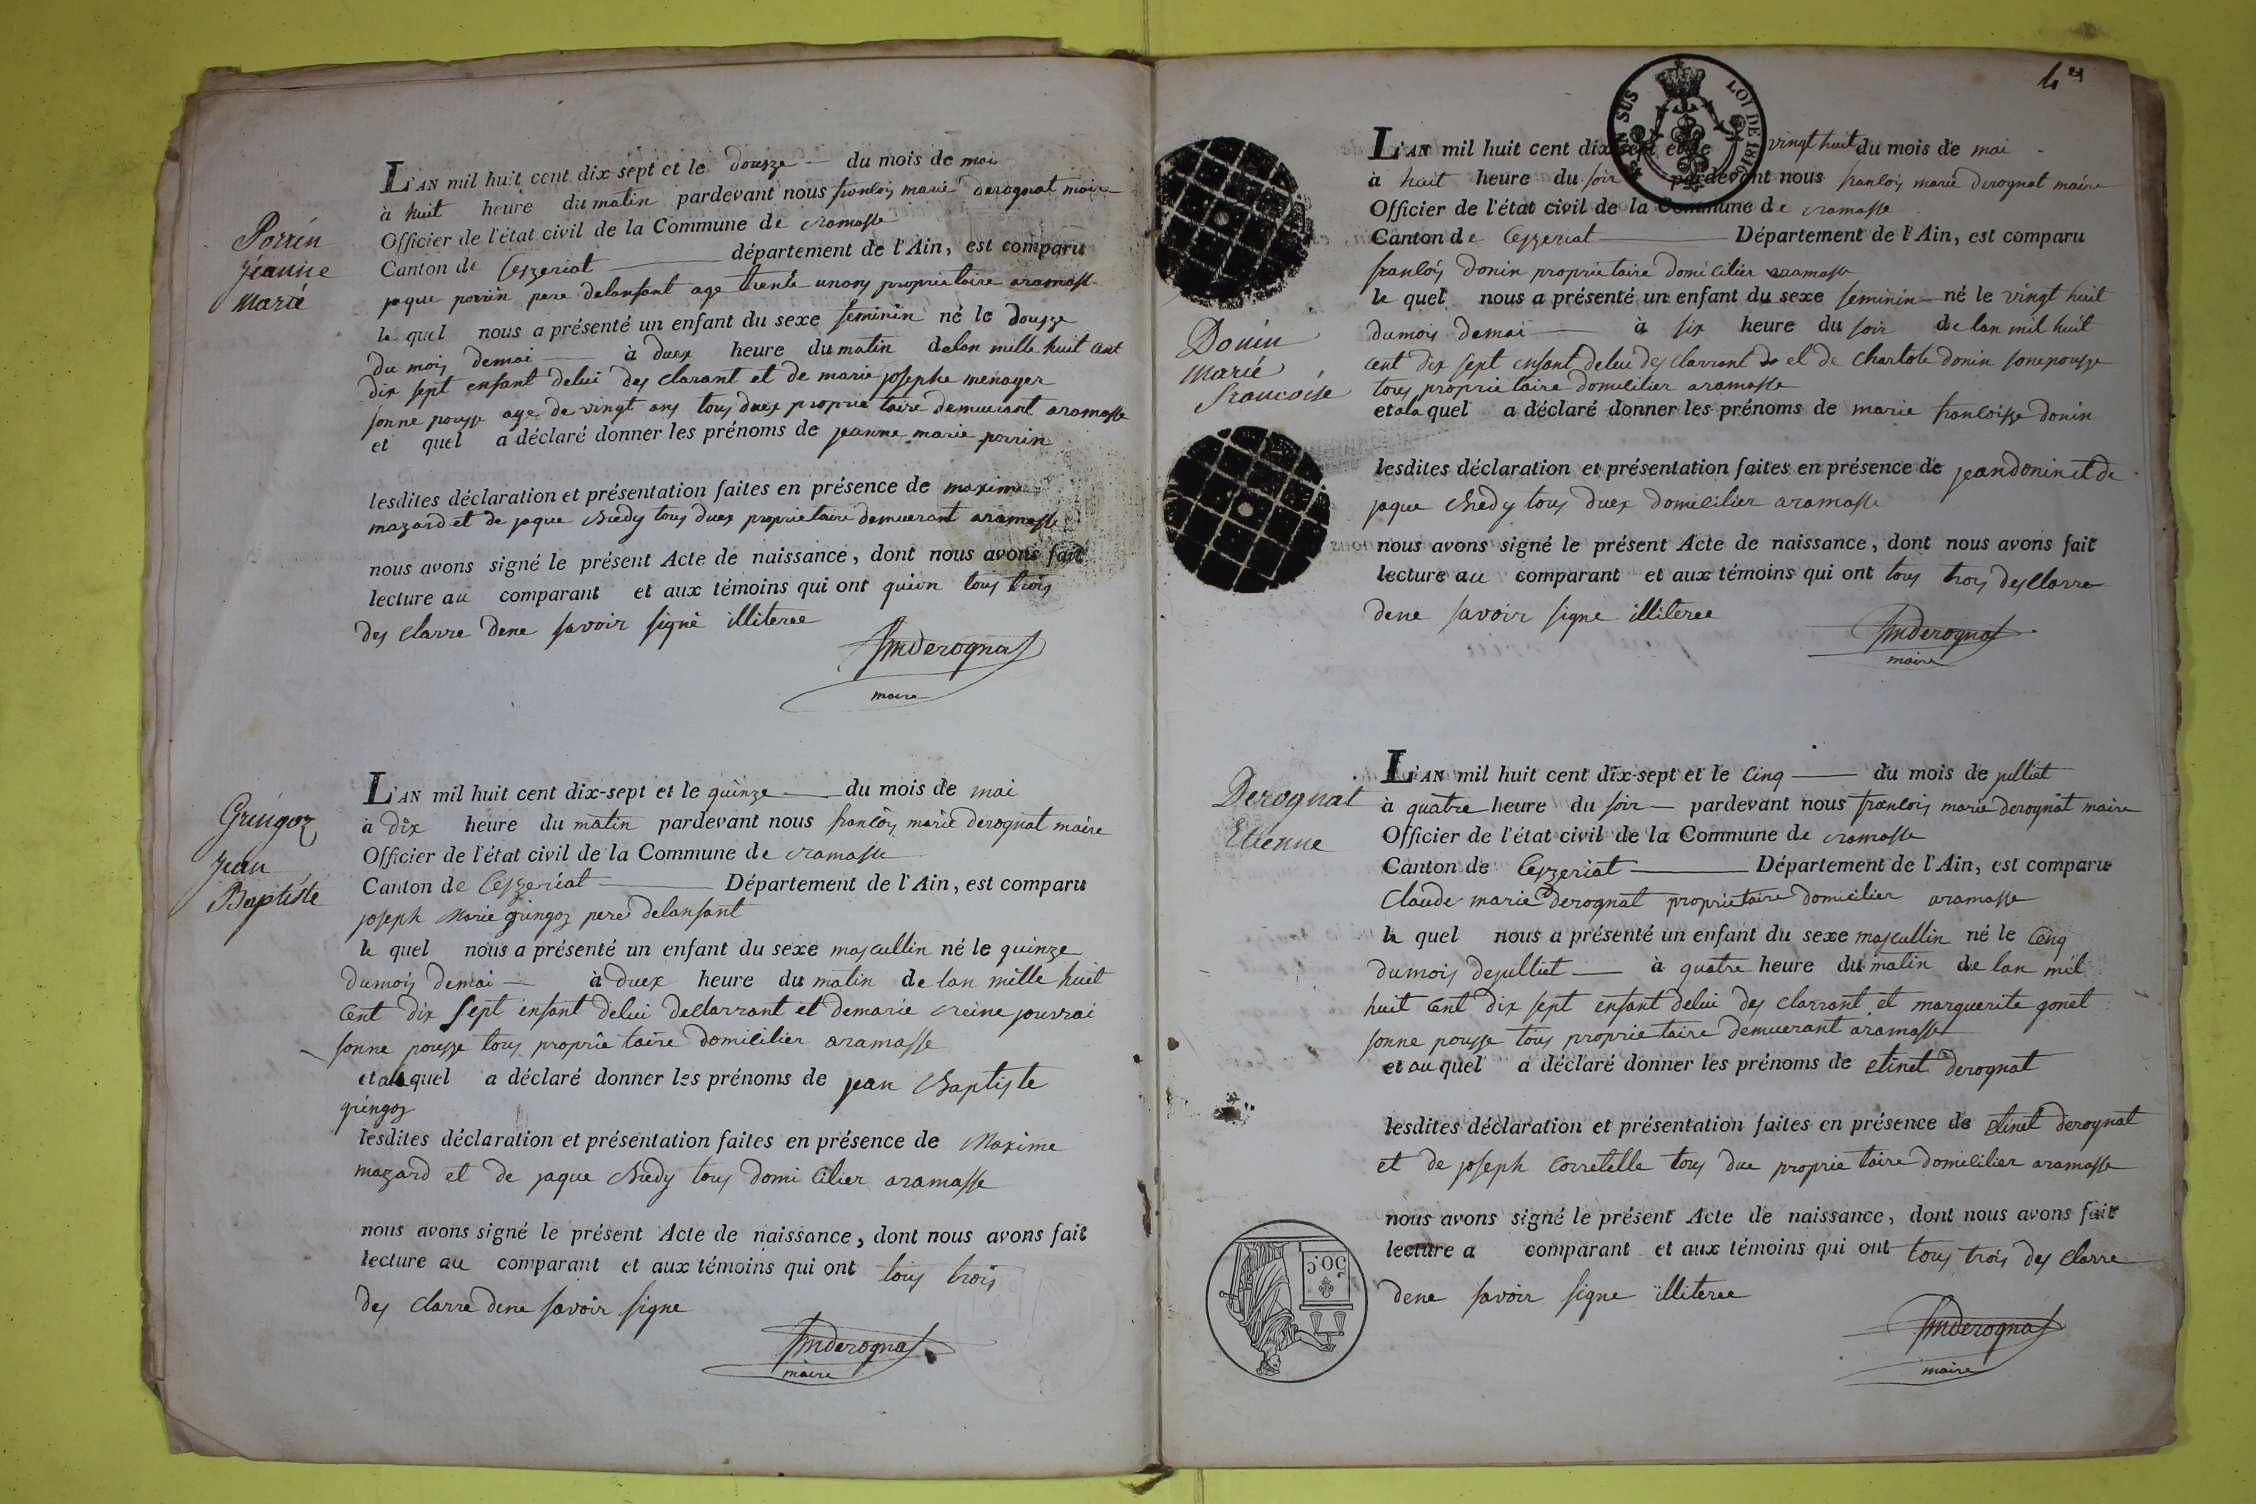 Porrin
jeanne
marie
L'AN mil huit cent dix-sept et le douzze du mois de mai
à huit heure du matin pardevant nous francois marie derognat maire
Officier de l'état civil de la Commune de ramasse
Canton de Ceyzeriat département de l'Ain, est comparu
jaque porrin pere delansant age trente un ans proprietaire aramasse
le quel nous a présenté un enfant du sexe feminin né le douzze
du mois demai à duex heure du matin delan mille huit cent
dix sept enfant delui des clarant et de marie josephe menager
sonne pousse age de vingt ans tous duex proprietaire demeurant aramasse
et quel a déclaré donner les prénoms de jeanne marie porrin
lesdites déclaration et présentation faites en présence de maxime
mazard et de jaque chedy tous duex proprietaire demuerant aramasse
nous avons signé le présent Acte de naissance, dont nous avons fait
lecture au comparant et aux témoins qui ont tous trois
des clarre dene savoir signé illiteree
fmderognat
maire
Gringoz
jean
Baptiste
L'AN mil huit cent dix-sept et le quinze du mois de mai
à dix heure du matin pardevant nous francois marie derognat maire
Officier de l'état civil de la Commune de ramasse
Canton de Ceyzeriat Département de l'Ain, est comparu
joseph Marie gringoz pere delansant
le quel nous a présenté un enfant du sexe mascullin né le quinze
dumois demai à duex heure du matin de lan mille huit
cent dix sept enfant delui declarrant et demarie reine jouvrai
sonne pousse tous proprietaire domicilier aramasse
et quel a déclaré donner les prénoms de jean Baptiste
gringoz
lesdites déclaration et présentation faites en présence de Maxime
mazard et de jaque chedy tous domicilier aramasse
nous avons signé le présent Acte de naissance, dont nous avons fait
lecture au comparant et aux témoins qui ont tous trois
des clarre dene savoir signe
fmderognat
maire
4
LOI DE 1816
Donin
marie
francoise
L'AN mil huit cent dix-sept et le vingt huit du mois de mai
à huit heure du soir pardevant nous francois marie derognat maire
Officier de l'état civil de la Commune de ramasse
Canton de Ceyzeriat Département de l'Ain, est comparu
francois donin proprietaire domicilier aramasse
le quel nous a présenté un enfant du sexe feminin né le vingt huit
dumois demai à six heure du soir de lan mil huit
cent dix sept enfant delui des clarrant et de charlote donin sonepousse
tous proprietaire domicilier aramasse
etala quel a déclaré donner les prénoms de marie francoisse donin
lesdites déclaration et présentation faites en présence de jean donin et de
jaque chedy tous duex domicilier aramasse
nous avons signé le présent Acte de naissance, dont nous avons fait
lecture au comparant et aux témoins qui ont tous trois desclarre
dene savoir signe illiteree
fmderognat
maire
Derognat
Etienne
L'AN mil huit cent dix-sept et le cinq du mois de julliet
à quatre heure du soir pardevant nous francois marie derognat maire
Officier de l'état civil de la Commune de ramasse
Canton de Ceyzeriat Département de l'Ain, est comparu
Claude marie derognat proprietaire domicilier aramasse
le quel nous a présenté un enfant du sexe mascullin né le cinq
dumois dejulliet à quatre heure du matin de lan mil
huit cent dix sept enfant delui des clarrant et marguerite gonet
sonne pousse tous proprietaire demuerant aramasse
et au quel a déclaré donner les prénoms de etinet derognat
lesdites déclaration et présentation faites en présence de etinet derognat
et de joseph corretelle tous due proprietaire domicilier aramasse
nous avons signé le présent Acte de naissance, dont nous avons fait
lecture a comparant et aux témoins qui ont tous trois des clarre
dene savoir signe illiteree
50 C
fmderognat
maire